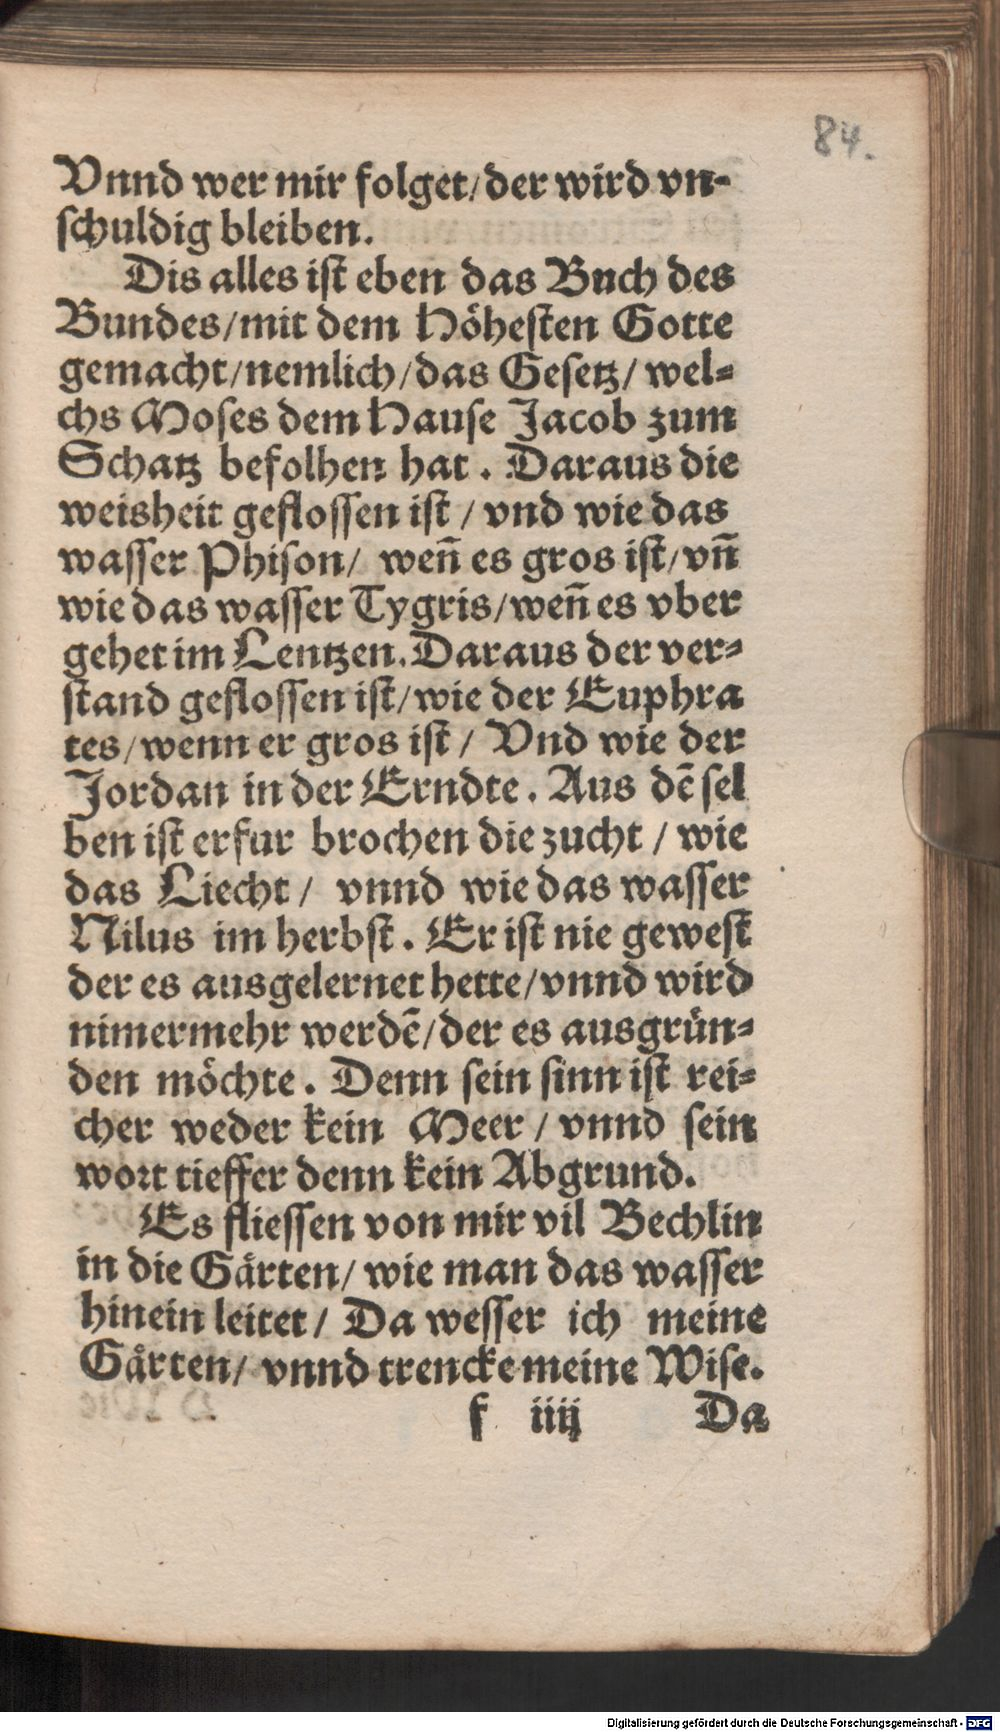 84.
Vnnd wer mir folget/der wird vn-
schuldig bleiben.
Dis alles ist eben das Buch des
Bundes/mit dem Höhesten Gotte
gemacht/nemlich/das Gesetz/ wel-
chs Moses dem Hause Jacob zum
Schatz befolhen hat. Daraus die
weisheit geflossen ist / vnd wie das
wasser Phison/ wen̄ es gros ist/vn̄
wie das wasser Tygris/wen̄ es vber
gehet im Lentzen. Daraus der ver-
stand geflossen ist/wie der Euphra
tes/wenn er gros ist / Vnd wie der
Jordan in der Erndte. Aus dē sel
ben ist erfur brochen die zucht / wie
das Liecht/ vnnd wie das wasser
Nilus im herbst. Er ist nie gewest
der es ausgelernet hette/vnnd wird
nimermehr werdē/der es ausgrün-
den möchte. Denn sein sinn ist rei-
cher weder kein Meer / vnnd sein
wort tieffer denn kein Abgrund.
Es fliessen von mir vil Bechlin
in die Gärten/ wie man das wasser
hinein leitet/ Da wesser ich meine
Gärten/ vnnd trencke meine Wise.
f iiij Da
Digitalisierung gefördert durch die Deutsche Forschungsgemeinschaft - DFG